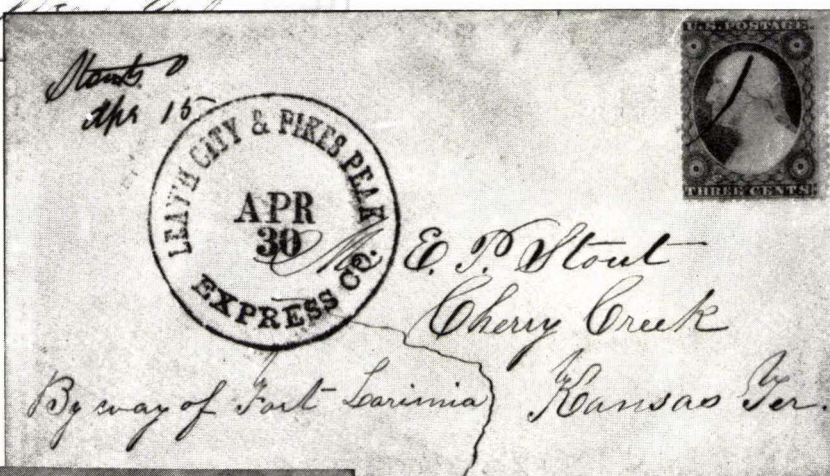 Stouts O
Apr 15
U.S. POSTAGE.
THREE CENTS
LEAV'H CITY & PIKES PEAK
APR
30
EXPRESS CO.
Mr. E. P. Stout
Cherry Creek
Kansas Ter.
By way of Fort Larimia